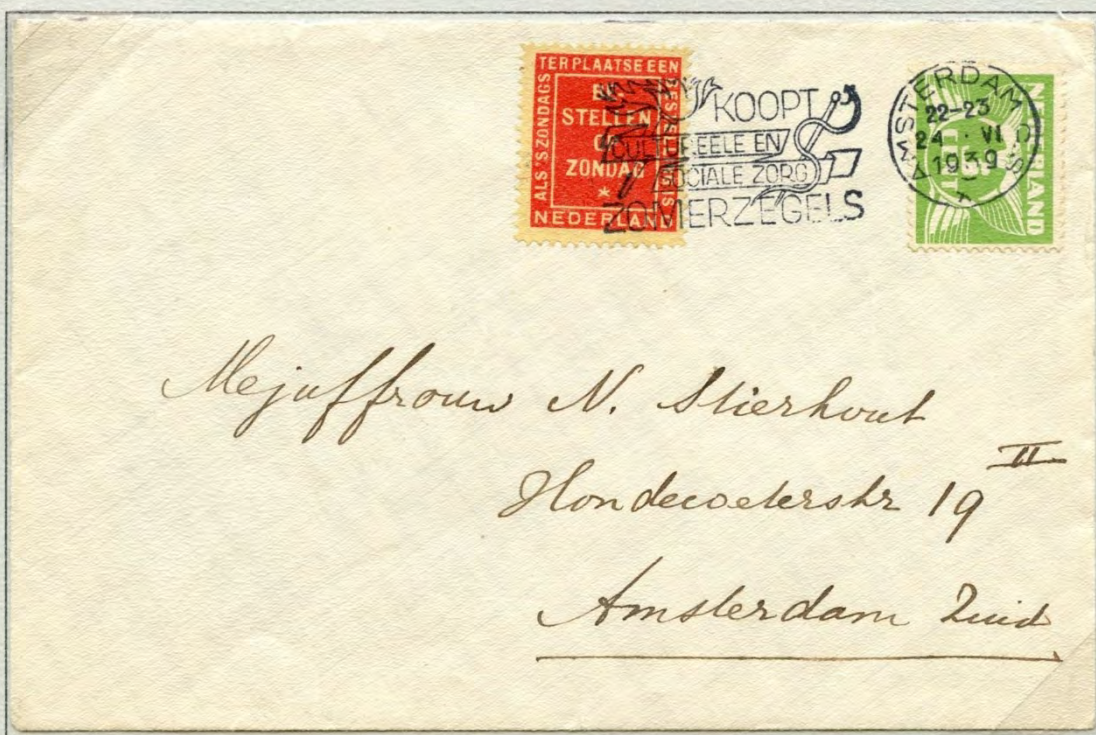 TER PLAATSE EEN
ALS 'S ZONDAGS
BE-
STELLEN
OP
ZONDAG
*
NEDERLAND
KOOPT
CULTUREELE EN
SOCIALE ZORG
ZOMERZEGELS
AMSTERDAM C.S.
22-23
24 VI
1939
NEDERLAND
CENT
Mejuffrouw N. Stierhout
Hondecoeterstr 19 II
Amsterdam Zuid